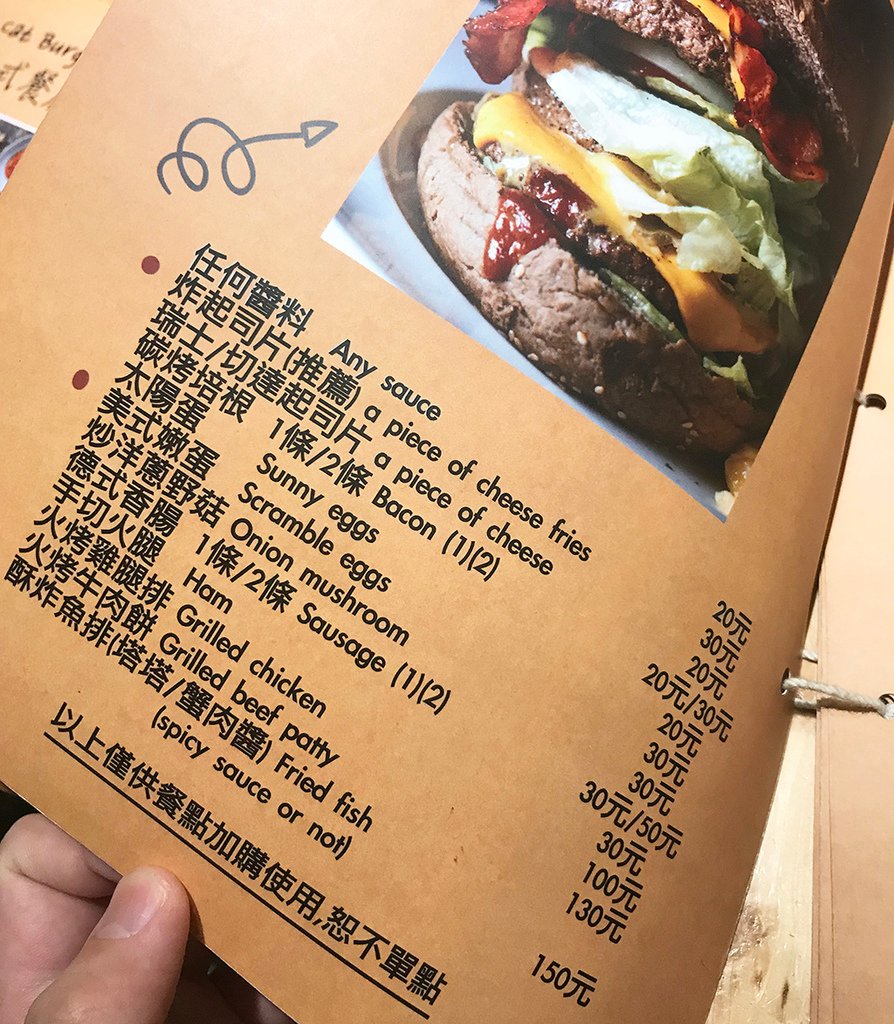 cat Burg
式餐
任何醬料 Any sauce 20元
炸起司片(推薦) a piece of cheese fries 30元
瑞士/切達起司片 a piece of cheese 20元
碳烤培根 1條/2條 Bacon (1)(2) 20元/30元
太陽蛋 Sunny eggs 20元
美式嫩蛋 Scramble eggs 30元
炒洋蔥野菇 Onion mushroom 30元
德式香腸 1條/2條 Sausage (1)(2) 30元/50元
手切火腿 Ham 30元
火烤雞腿排 Grilled chicken 100元
火烤牛肉餅 Grilled beef patty 130元
酥炸魚排(塔塔/蟹肉醬) Fried fish
(spicy sauce or not) 150元
以上僅供餐點加購使用,恕不單點